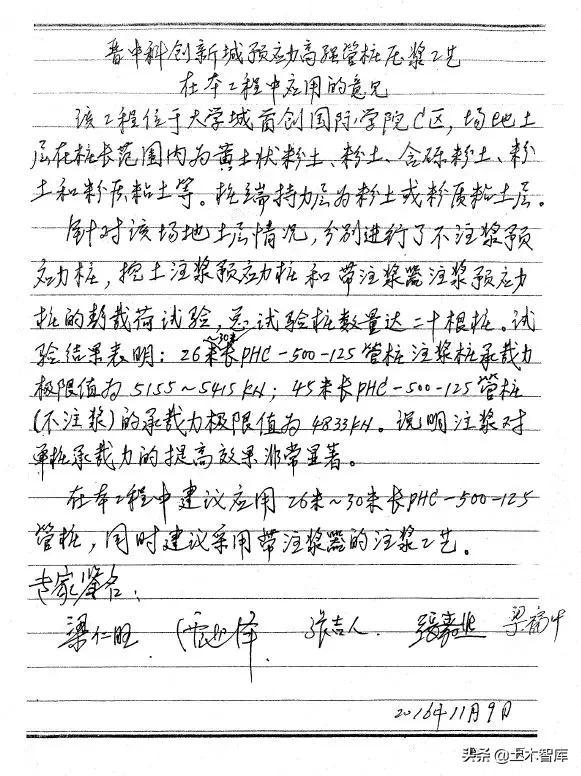 晋中科创新城预应力高强管桩压浆工艺
在本工程中应用的意见
该工程位于大学城首创国际学院C区，场地土
层在桩长范围内为黄土状粉土、粉土、含砾粉土、粉
土和粉质粘土等。桩端持力层为粉土或粉质粘土层。
针对该场地土层情况，分别进行了不注浆预
应力桩，挖土注浆预应力桩和带注浆器注浆预应力
桩的静载荷试验，总试验桩数量达二十根桩。试
~30米
验结果表明：26米长PHC-500-125管桩注浆桩承载力
极限值为5155~5415KN；45米长PHC-500-125管桩
(不注浆)的承载力极限值为4833KN。说明注浆对
单桩承载力的提高效果非常显著。
在本工程中建议应用26米~30米长PHC-500-125
管桩，同时建议采用带注浆器的注浆工艺。
专家签名：
梁仁旺 张吉人
2016年11月9日
头条@土木智库